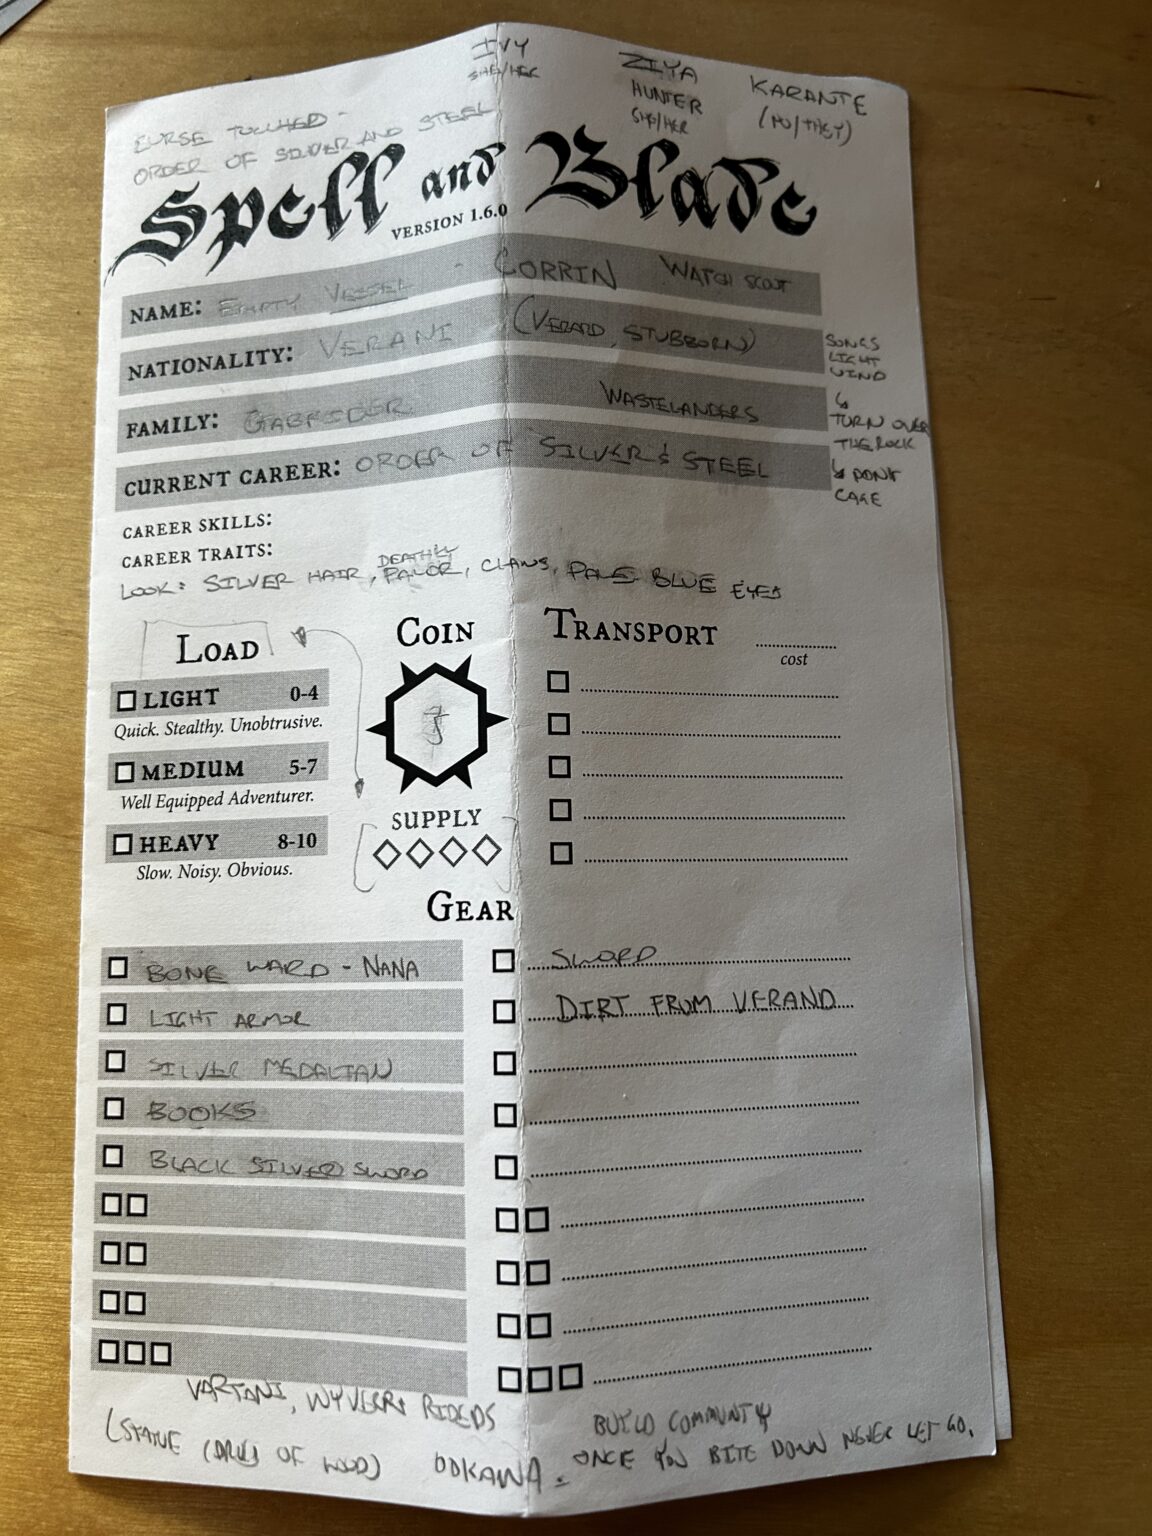 IVY
SHE/HER
ZIYA
HUNTER
SHE/HER
KARANTE
CURSE TOUCHED -
ORDER OF SILVER AND STEEL
Spell and Blade
VERSION 1.6.0
NAME: EMPTY VESSEL - CORRIN WATCH SCOUT
NATIONALITY: VERANI (VERARD, STUBBORN)
SONGS
LIGHT
WIND
FAMILY: WASTELANDERS
↳
TURN OVER
THE ROCK
CURRENT CAREER: ORDER OF SILVER & STEEL
↳ DON'T
CARE
CAREER SKILLS:
CAREER TRAITS:
LOOK: SILVER HAIR, DEATHLY PALOR, CLAWS, PALE BLUE EYES
LOAD
LIGHT 0-4
Quick. Stealthy. Unobtrusive.
MEDIUM 5-7
Well Equipped Adventurer.
HEAVY 8-10
Slow. Noisy. Obvious.
COIN
SUPPLY
TRANSPORT
cost
GEAR
BONE WARD - NANA
LIGHT ARMOR
SILVER MEDALIAN
BOOKS
BLACK SILVER SWORD
SWORD
DIRT FROM VERAND
VARTANI, WYVERN RIDERS
(STATUE OF WOOD)
ODKAWA -
BUILD COMMUNTY
ONCE YOU BITE DOWN NEVER LET GO.